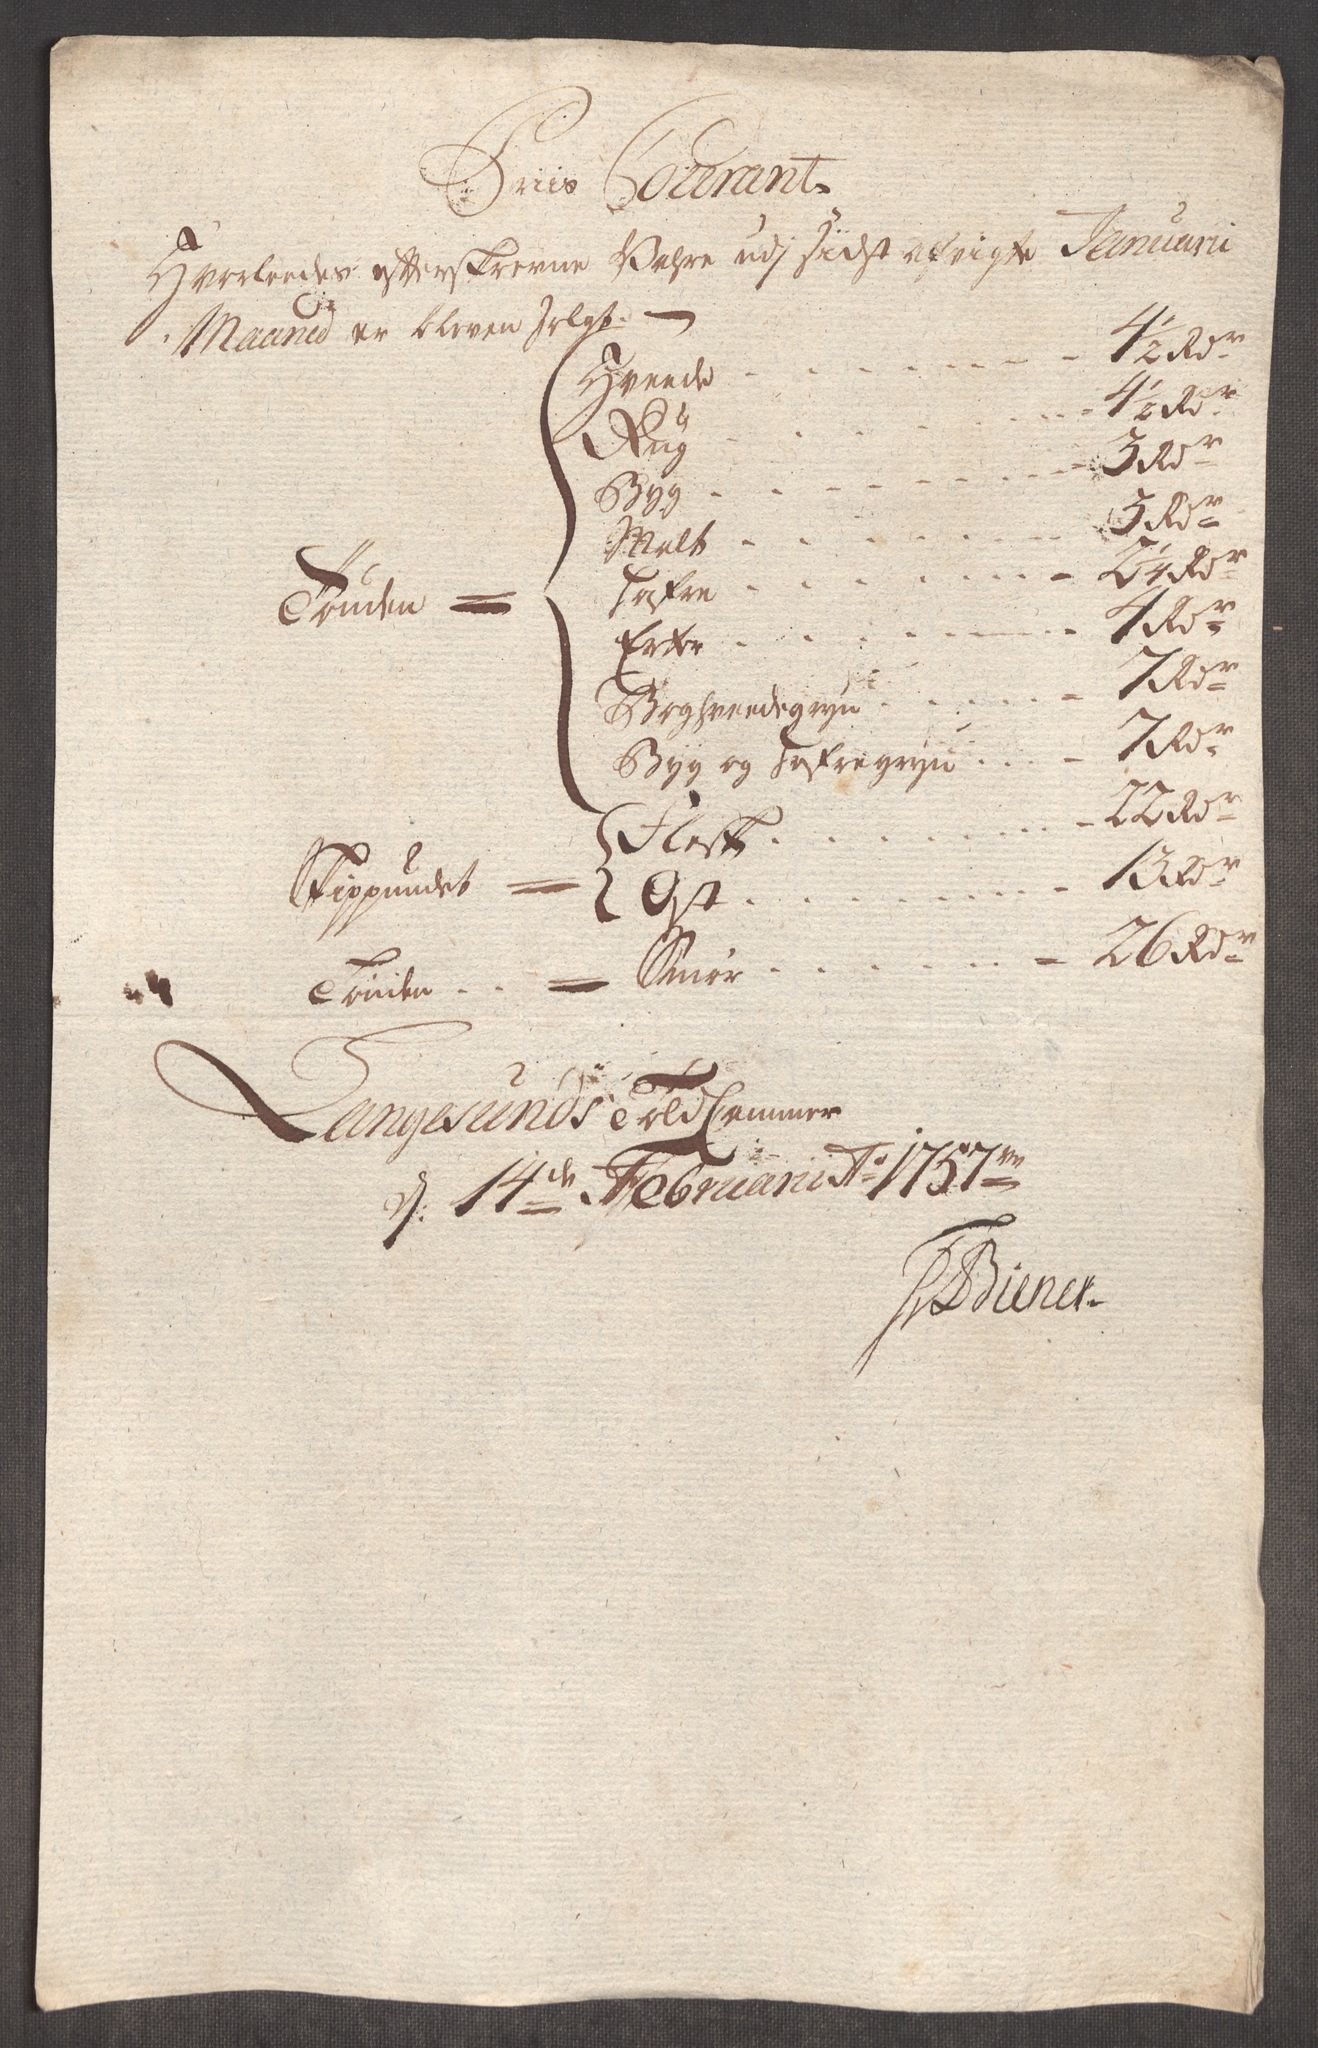 Priis Courant
Hvorleedes efterskrevne Vahre udj sidst afvigte Januarii
Maaned er bleven solgt.
Tönden = Hveede - - - 4 1/2 Rdr
Rüg - - - 4 1/2 Rdr
Byg - - - 3 Rdr
Malt - - - 3 Rdr
Hafre - - - 2 1/4 Rdr
Erter - - - 4 Rdr
Boghveedegryn - - - 7 Rdr
Byg og Hafregryn - - - 7 Rdr
Skippundet = Flesk - - - 22 Rdr
Ost - - - 13 Rdr
Tönden = Smör - - - 26 Rdr
Langesunds Told Cammer
d: 14de Februarii Ao 1757
Biener.